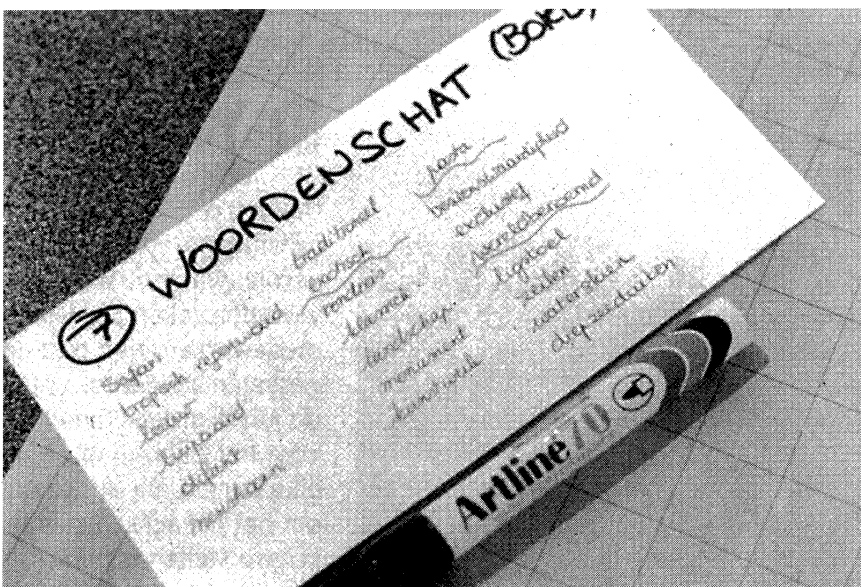 7 WOORDENSCHAT (BORD)
Safari
tropisch regenwoud
leeuw
luipaard
olifant
traditioneel
exotisch
rondreis
klassiek
landschap
monument
kunstwerk
pasta
bezienswaardigheid
exclusief
wereldberoemd
ligstoel
zeilen
waterskiën
diepzeeduiken
Artline 70